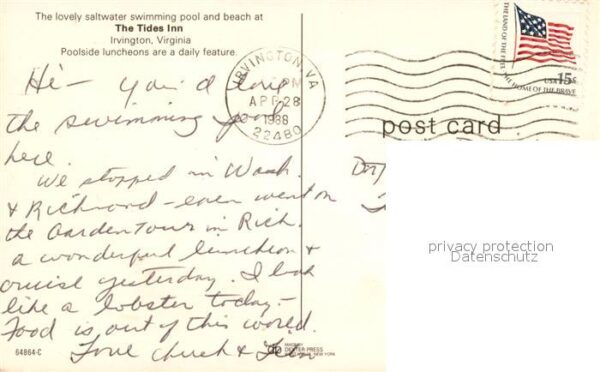 The lovely saltwater swimming pool and beach at
The Tides Inn
Irvington, Virginia
Poolside luncheons are a daily feature.
Hi — you'd love
the swimming pool
here.
We stopped in Wash.
& Richmond – even went on
the Garden Tour in Rich.
a wonderful luncheon &
cruise yesterday. I look
like a lobster today –
Food is out of this world.
Love Chuck &
64864-C
DEXTER PRESS
IRVINGTON, VA
PM
APR 28
1988
22480
THE LAND OF THE FREE THE HOME OF THE BRAVE
USA 15c
post card
privacy protection
Datenschutz